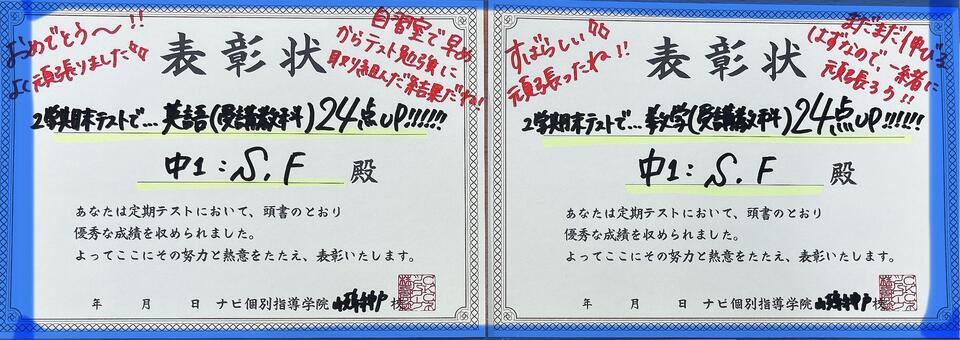 おめでとう〜!!
よく頑張りました
表彰状
自習室で早め
からテスト勉強に
取り組んだ結果だね!
2学期期末テストで…英語(受講教科)24点UP!!!!!!
中1:S.F 殿
あなたは定期テストにおいて、頭書のとおり
優秀な成績を収められました。
よってここにその努力と熱意をたたえ、表彰いたします。
年 月 日 ナビ個別指導学院
すばらしい
頑張ったね!!
表彰状
まだまだ伸びる
はずなので、一緒に
頑張ろう!!
2学期期末テストで…数学(受講教科)24点UP!!!!!!
中1:S.F 殿
あなたは定期テストにおいて、頭書のとおり
優秀な成績を収められました。
よってここにその努力と熱意をたたえ、表彰いたします。
年 月 日 ナビ個別指導学院